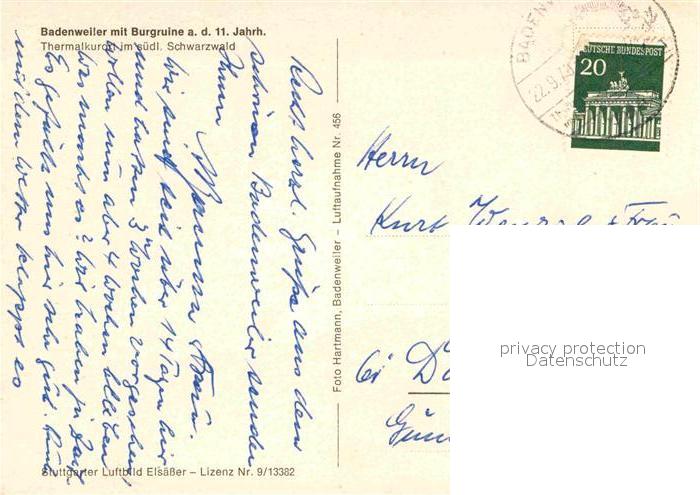 Badenweiler mit Burgruine a. d. 11. Jahrh.
Thermalkurort im südl. Schwarzwald
Recht herzl. Grüße aus dem
schönen Badenweiler senden
Ihnen
Wir sind seit über 14 Tagen hier
und hatten 3 Wochen vorgesehen,
wollen nun aber 4 Wochen bleiben
was macht es? Wir haben ja Zeit
Es gefällt uns hier sehr gut. Nur
mit dem Wetter klappt es
Foto Hartmann, Badenweiler – Luftaufnahme Nr. 456
Stuttgarter Luftbild Elsäßer – Lizenz Nr. 9/13382
BADENW
22.9.
DEUTSCHE BUNDESPOST
20
Herrn
Kurt
privacy protection
Datenschutz